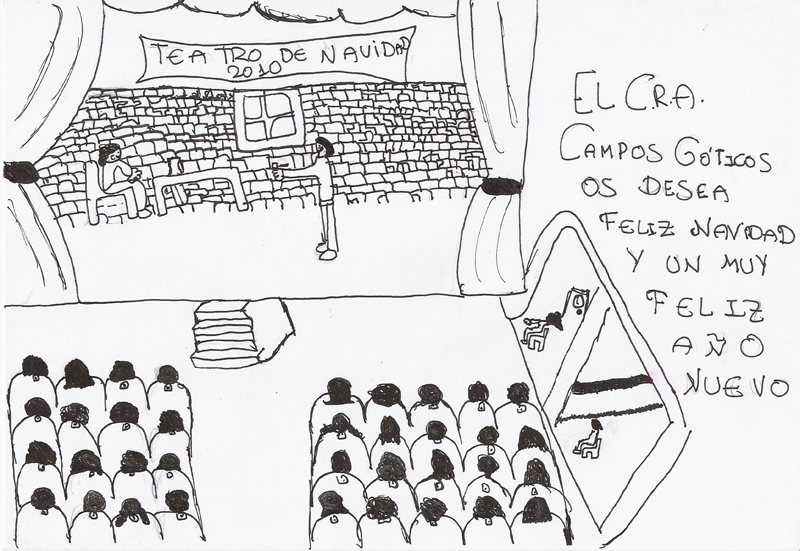 TEATRO DE NAVIDAD
2010
EL C.R.A.
CAMPOS GÓTICOS
OS DESEA
FELIZ NAVIDAD
Y UN MUY
FELIZ
AÑO
NUEVO